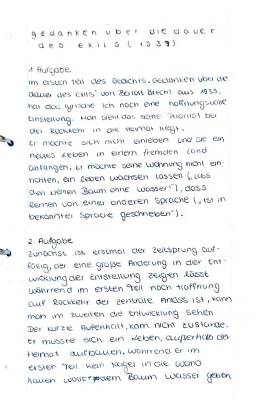 gedanken über die dauer
des exils (1939)
1. Aufgabe
Im ersten Teil des Gedichts, Gedanken über die
dauer des exils" von Bertolt Brecht aus 1939,
hat das lyrische Ich noch eine hoffnungsvolle
Einstellung. Man sieht das seine Priorität bei
der Rückkehr in die Heimat liegt.
Er möchte sich nicht einleben und sie ein
neues Leben in einem fremden Land
anfangen. Er möchte seine Wohnung nicht ein-
richten, ein Leben wachsen lassen („Lass
den kleinen Baum ohne Wasser!"), dass
lernen von einer anderen Sprache („ist in
bekannter Sprache geschrieben").
2. Aufgabe
Zunächst ist erstmal der Zeitsprung auf-
fällig, der eine große Änderung in der Ent-
wicklung der Einstellung zeigen lässt
Während im ersten Teil noch Hoffnung
auf Rückkehr der zentrale Anlass ist, kann
man im zweiten die Entwicklung sehen
Der kurze Aufenthalt, kam nicht zustande.
Er musste sich ein Leben, außerhalb der
Heimat aufbauen. Während er im
ersten Teil kein Nagel in die Wand
hauen wollte, dem Baum Wasser geben